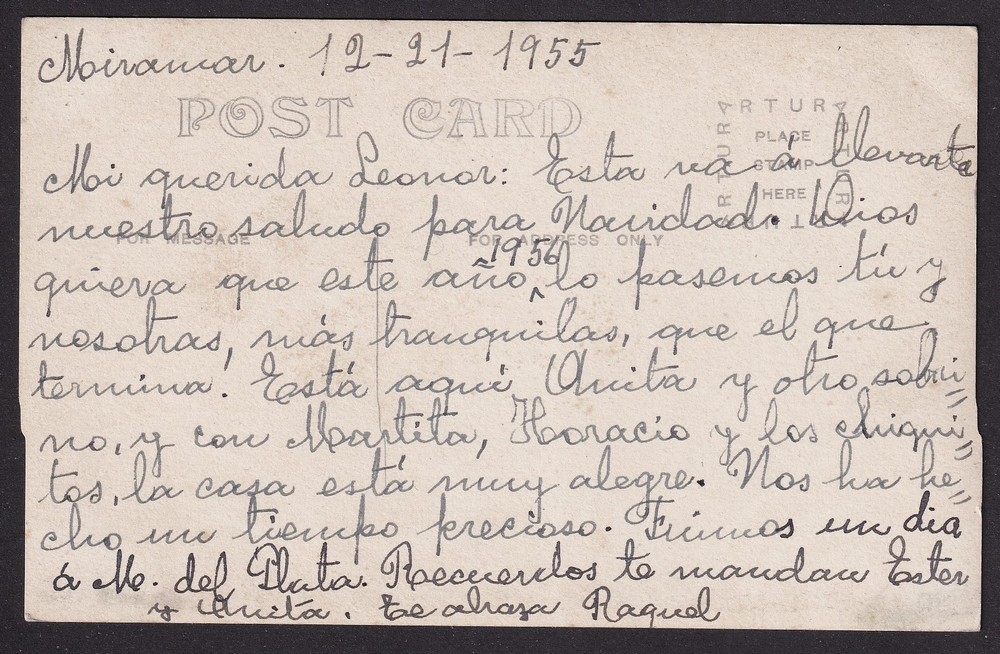 Miramar. 12-21-1955
POST CARD
ARTURA
ARTURA
PLACE
STAMP
HERE
ARTURA
ARTURA
Mi querida Leonor: Esta va á llevarte
nuestro saludo para Navidad. Dios
FOR MESSAGE
FOR ADDRESS ONLY
1956
quiera que este año, lo pasemos tú y
nosotras, más tranquilas, que el que
termina. Está aquí Anita y otro sobri=
no, y con Martita, Horacio y los chiqui=
tos, la casa está muy alegre. Nos ha he=
cho un tiempo precioso. Fuimos un dia
á M. del Plata. Recuerdos te mandan Ester
y Anita. Te abraza Raquel